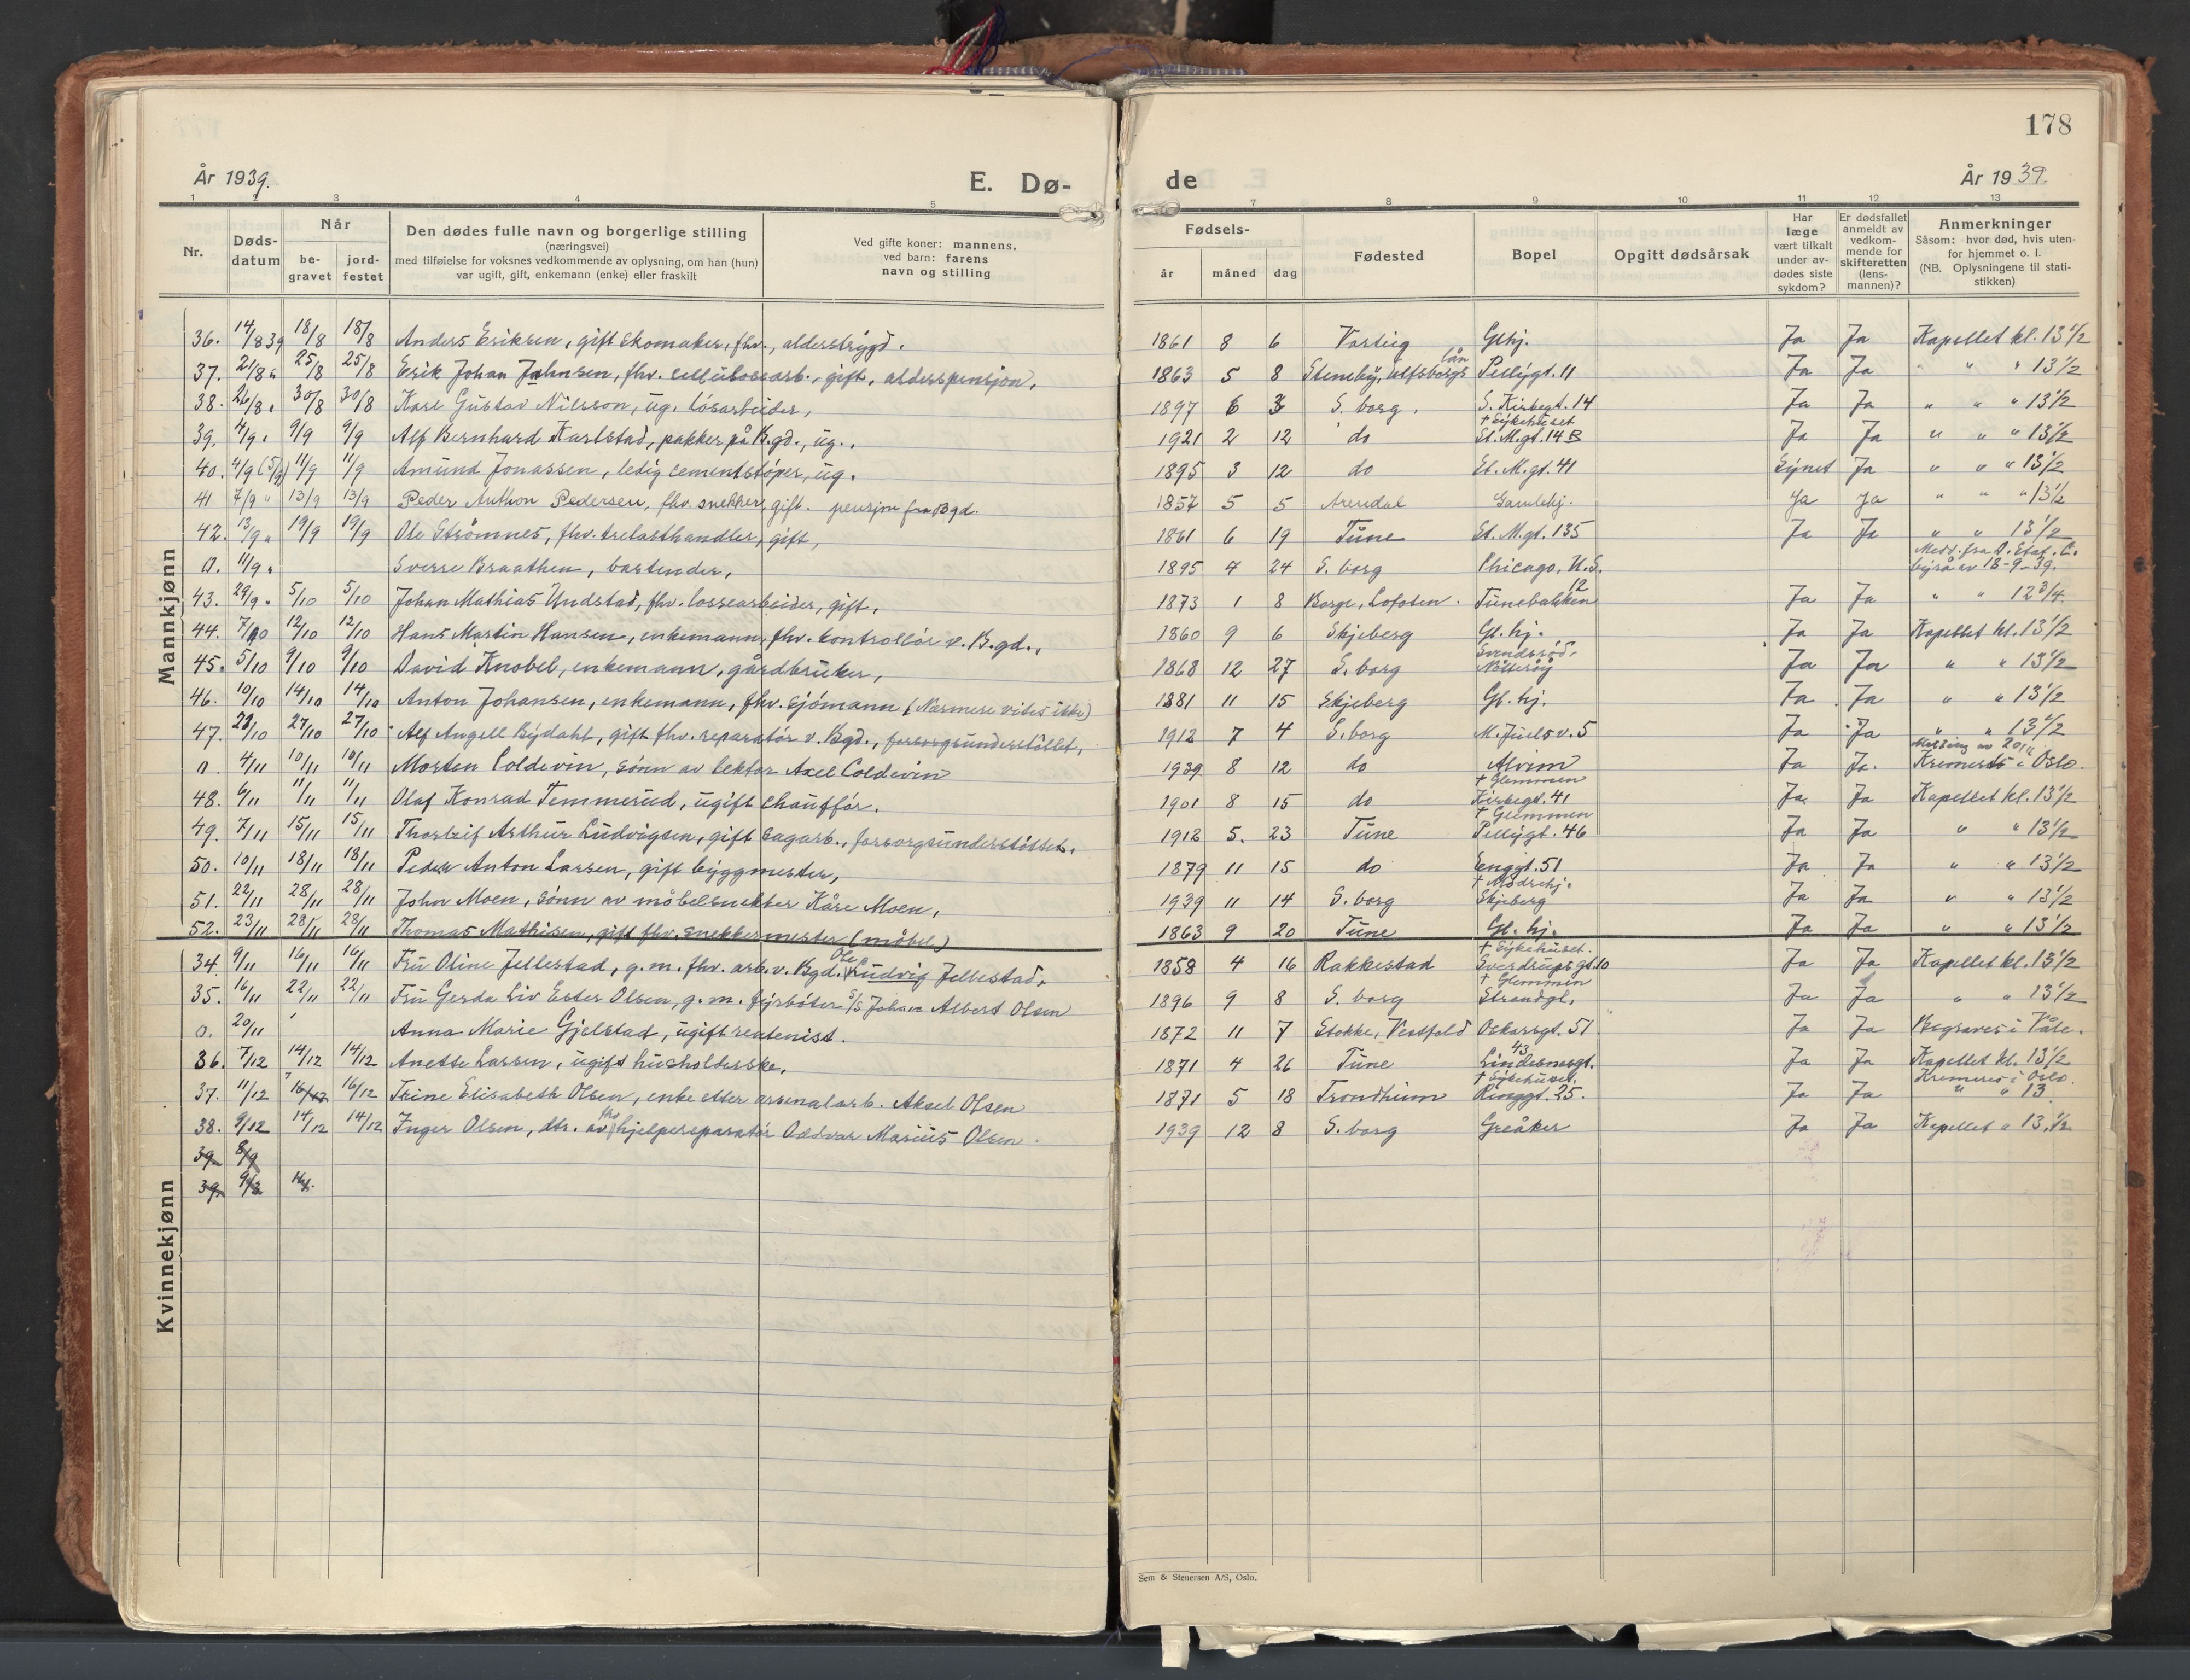 178
År 1939.
E. Dø-
de
År 1939.
1 2 3 4 5 7 8 9 10 11 12 13
Nr.
Døds-
datum
Når
be-
gravet
jord-
festet
Den dødes fulle navn og borgerlige stilling
(næringsvei)
med tilføielse for voksnes vedkommende av oplysning, om han (hun)
var ugift, gift, enkemann (enke) eller fraskilt
Ved gifte koner: mannens,
ved barn: farens
navn og stilling
Fødsels-
år måned dag
Fødested
Bopel
Opgitt dødsårsak
Har
læge
vært tilkalt
under av-
dødes siste
sykdom?
Er dødsfallet
anmeldt av
vedkom-
mende for
skifteretten
(lens-
mannen)?
Anmerkninger
Såsom: hvor død, hvis uten-
for hjemmet o. l.
(NB. Oplysningene til stati-
stikken)
Mannkjønn
36. 14/8 39 18/8 18/8 Anders Eriksen, gift skomaker, fhv., alderstrygd. 1861 8 6 Varteig Glhj. Ja Ja Kapellet kl. 13 1/2
37. 21/8 " 25/8 25/8 Erik Johan Jahnsen, fhv. cellulosearb., gift, alderspensjon, 1863 5 8 Steneby, Elfsborgs län Pellygt. 11 Ja Ja " " " 13 1/2
38. 26/8 " 30/8 30/8 Karl Gustav Nilsson, ug. løsarbeider, 1897 6 3 S. borg. S. Kirkegt. 14 Ja Ja " " " 13 1/2
39. 4/9 " 9/9 9/9 Alf Bernhard Karlstad, pakker på B.gd., ug., 1921 2 12 do † Sykehuset St. M.gt. 14 B Ja Ja " " " 13 1/2
40. 4/9 (5/9) 11/9 11/9 Amund Jonassen, ledig cementstøper, ug. 1895 3 12 do St. M.gt. 41 Synet Ja " " " 13 1/2
41 7/9 " 13/9 13/9 Peder Anthon Pedersen, fhv. snekker, gift. pensjon fra Bgd. 1857 5 5 Arendal Gamlehj. Ja Ja " " " 13 1/2
42. 13/9 " 19/9 19/9 Ole Strømnes, fhv. trelasthandler, gift, 1861 6 19 Tune St. M.gt. 135 Ja Ja " " 13 1/2
0. 11/9 " Sverre Braathen, bartender, 1895 4 24 S. borg Chicago, U.S. Medd. fra D. Stat. C. byrå av 18-9-39.
43. 29/9 " 5/10 5/10 Johan Mathias Undstad, fhv. lossearbeider, gift, 1873 1 8 Borge, Lofoten. Tunebakken 12 Ja Ja " " 12 3/4.
44. 7/10 12/10 12/10 Hans Martin Hansen, enkemann, fhv. kontrollør v. B.gd., 1860 9 6 Skjeberg Gl. hj. Ja Ja Kapellet kl. 13 1/2
45. 5/10 9/10 9/10 David Knobel, enkemann, gårdbruker, 1868 12 27 S. borg Svendsrød, Nøtterøy Ja Ja " " 13 1/2
46. 10/10 14/10 14/10 Anton Johansen, enkemann, fhv. sjømann (Nærmere vites ikke) 1881 11 15 Skjeberg Gl. hj. Ja Ja " " 13 1/2
47. 21/10 27/10 27/10 Alf Angell Bydahl, gift fhv. reparatør v. Bgd., forsorgsunderstøttet, 1912 7 4 S. borg M. Juels v. 5 Ja Ja " " 13 1/2
0. 4/11 10/11 10/11 Morten Coldevin, sønn av lektor Axel Coldevin 1939 8 12 do Alvim Ja Ja. Melding av 20/11 Kremert i Oslo.
48. 6/11 11/11 11/11 Olaf Konrad Temmerud, ugift chauffør. 1901 8 15 do † Glemmen Kirkegt. 41 Ja Ja Kapellet kl. 13 1/2
49. 7/11 15/11 15/11 Thorleif Arthur Ludvigsen, gift sagarb., forsorgsunderstøttet. 1912 5. 23 Tune † Glemmen Pellygt. 46 Ja Ja " " 13 1/2
50. 10/11 18/11 18/11 Peder Anton Larsen, gift byggmester, 1879 11 15 do Enggt. 51 Ja Ja " " 13 1/2
51. 22/11 28/11 28/11 John Moen, sønn av møbelsnekker Kåre Moen, 1939 11 14 S. borg † Mødrehj. Skjeberg Ja Ja " " 13 1/2
52. 23/11 28/11 28/11 Thomas Mathisen, gift fhv. snekkermester (møbel) 1863 9 20 Tune Gl. hj. Ja Ja " " 13 1/2
Kvinnekjønn
34. 9/11 16/11 16/11 Fru Oline Jellestad, g. m. fhv. arb. v. Bgd. Ole Ludvig Jellestad. 1858 4 16 Rakkestad † Sykehuset. Sverdrupsgt. 10 Ja Ja Kapellet kl. 13 1/2
35. 16/11 22/11 22/11 Fru Gerda Liv Ester Olsen, g. m. fyrbøter s/s Johan Albert Olsen 1896 9 8 S. borg † Glemmen Strandgt. Ja Ja " " 13 1/2
0. 20/11 Anna Marie Gjelstad, ugift rentenist. 1872 11 7 Stokke, Vestfold Oskarsgt. 51 Ja Ja Begraves i Våle.
36. 7/12 14/12 14/12 Anette Larsen, ugift husholderske, 1871 4 26 Tune Lindemsgt. 43 Ja Ja Kapellet kl. 13 1/2
37. 11/12 16/12 16/12 Trine Elisabeth Olsen, enke etter arsenalarb. Aksel Olsen 1871 5 18 Trondheim † Sykehuset. Ringgt. 25. Ja Ja Kremeres i Oslo. " " 13
38. 9/12 14/12 14/12 Inger Olsen, dtr. av fhv hjelpereparatør Oddvar Marius Olsen. 1939 12 8 S. borg Greåker Ja Ja Kapellet " 13. 1/2
39. 8/9
39. 9/12 14/
Sem & Stenersen A/S, Oslo.